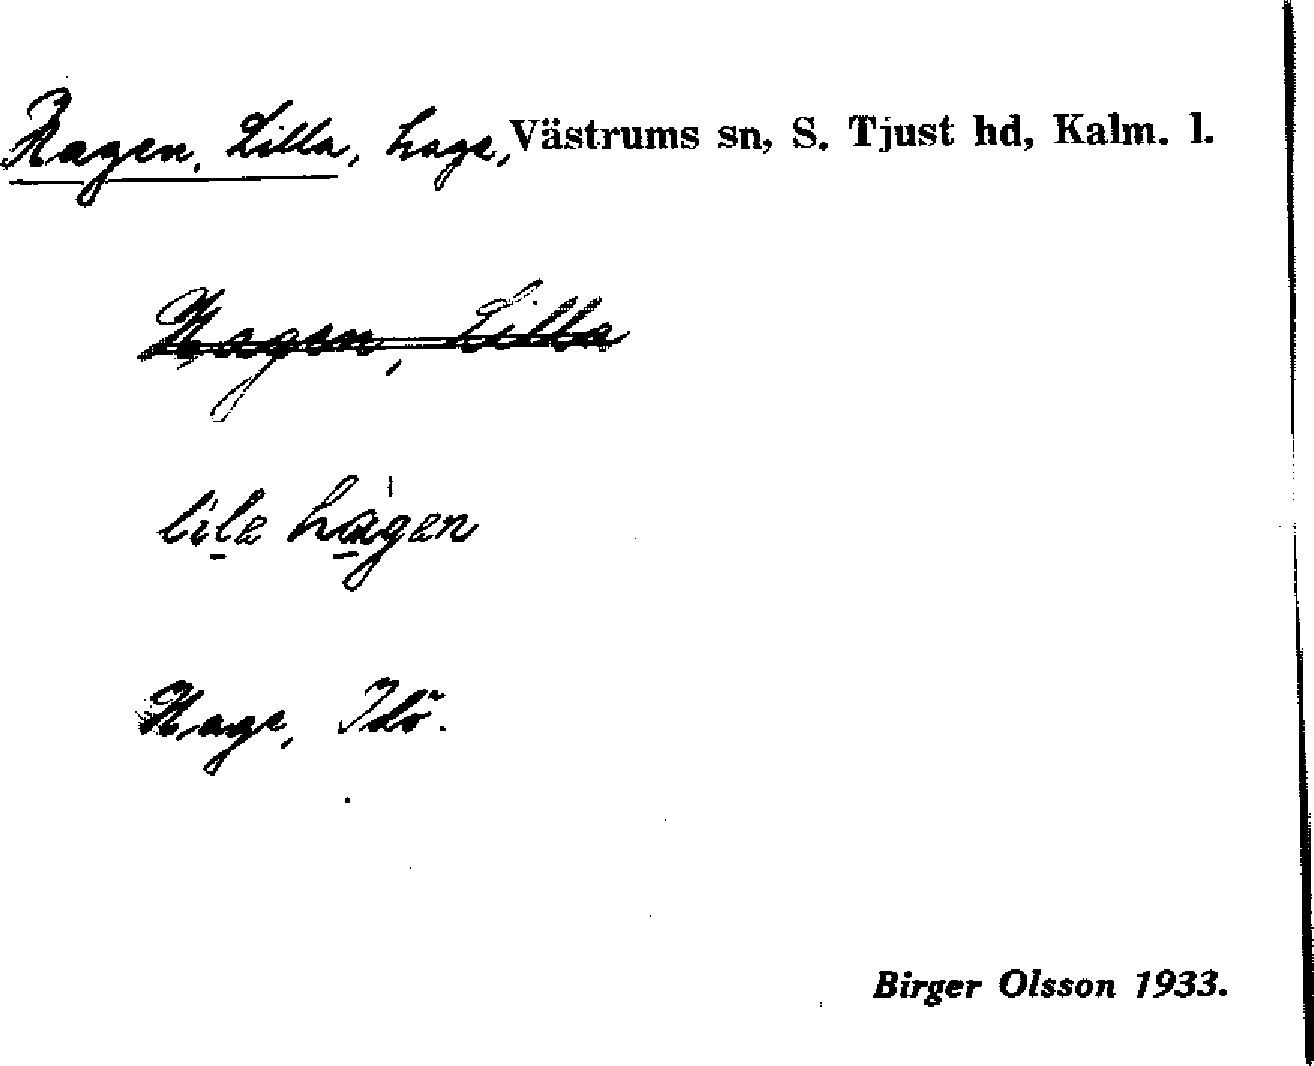 Hagen, Lilla, hage, Västrums sn, S. Tjust hd, Kalm. l.
Hagen, Lilla
lila hagen
Hage, Idö.
Birger Olsson 1933.